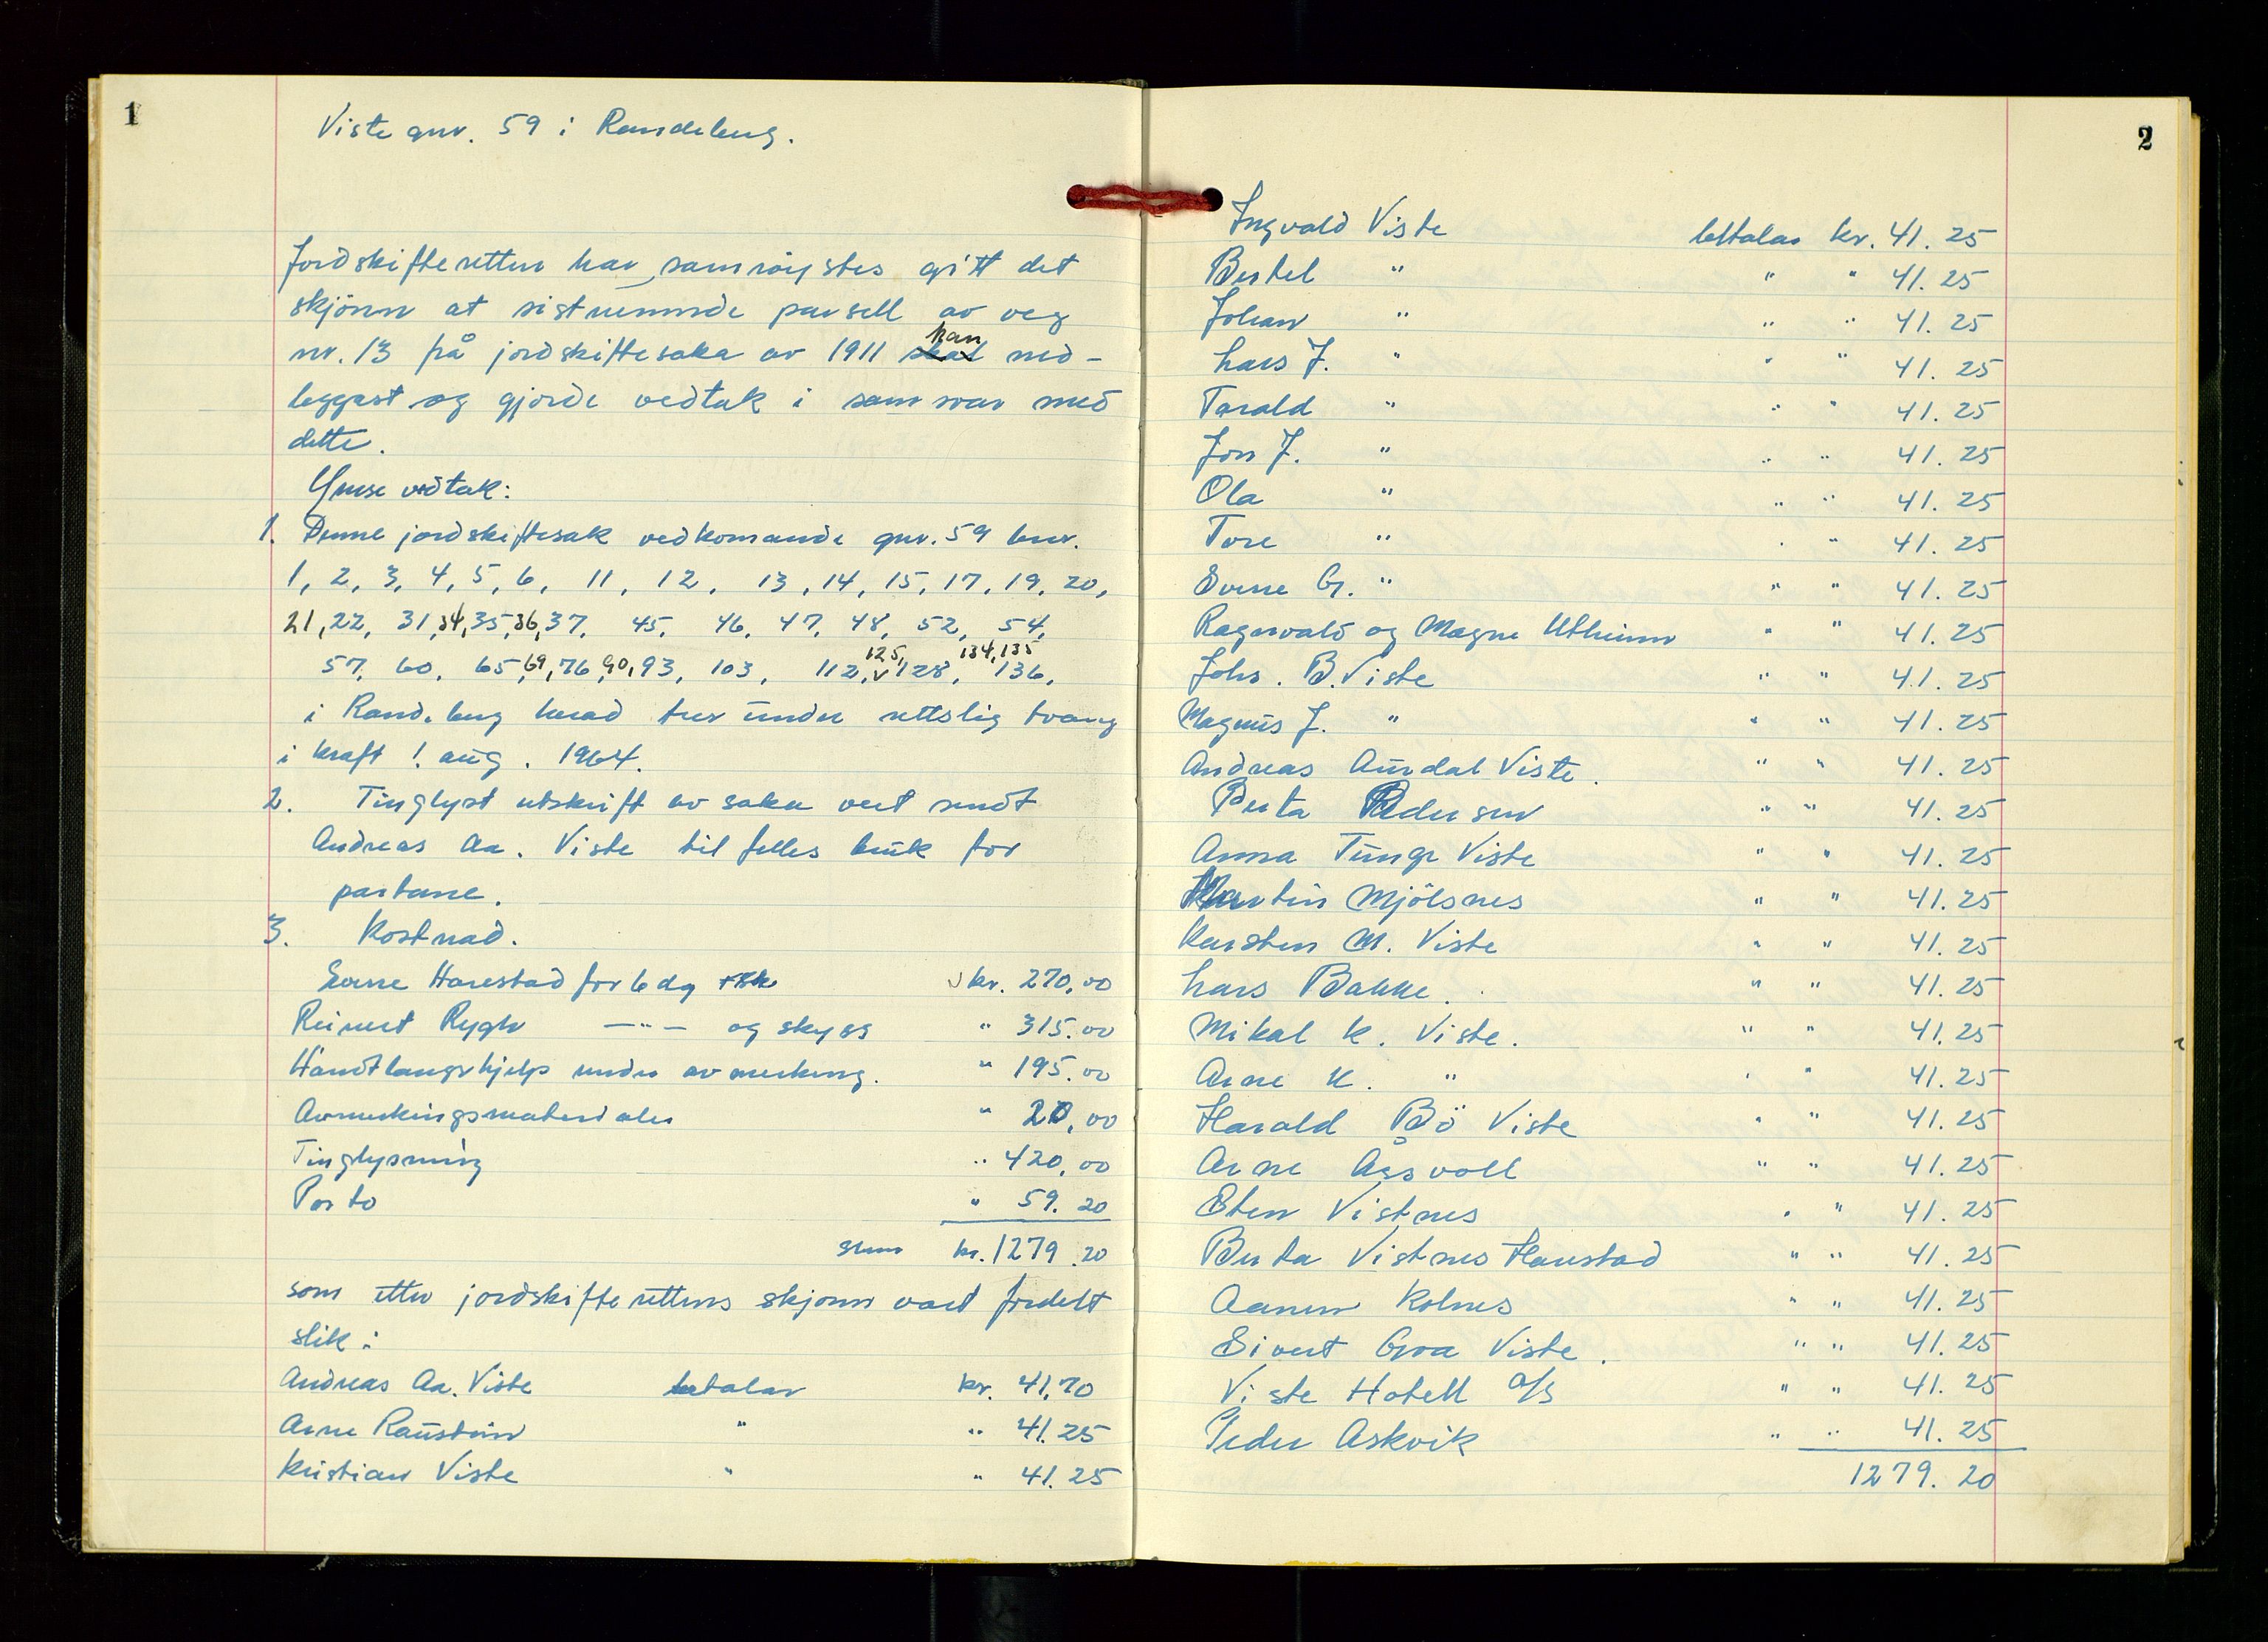 1
Viste gnr. 59 i Randeberg.
Jordskifteretten har samrøystes gitt det
skjönn at sistnemnde parsell av veg
nr. 13 frå jordskiftesaka av 1911 kan ned-
leggast og gjorde vedtak i samsvar med
dette.
Ymse vedtak:
1. Denne jordskiftesak vedkomande gnr. 59 bnr.
1, 2, 3, 4, 5, 6, 11, 12, 13, 14, 15, 17, 19, 20,
21, 22, 31, 34, 35, 36, 37, 45, 46, 47, 48, 52, 54,
57, 60, 65, 69, 76, 90, 93, 103, 112, 125, 128, 134, 135 136,
i Randeberg herad trer under rettslig tvang
i kraft 1. aug. 1964.
2. Tinglyst utskrift av saka vert sendt
Andreas Aa. Viste til felles bruk for
partane.
3. Kostnad.
Sverre Harestad for 6 dg kr. 270,00
Reinert Rygh —"— og skyss " 315.00
Handtlangerhjelp under avmerking. " 195.00
Avmerkingsmaterialer " 20,00
Tinglysning " 420,00
Porto " 59.20
sum kr. 1279.20
som etter jordskifterettens skjonn vart fordelt
slik:
Andreas Aa. Viste betalar kr. 41,70
Arne Raustein " " 41.25
Kristian Viste " " 41.25
2
Ingvald Viste bettalar kr. 41.25
Bertel " " " 41.25
Johan " " " 41.25
Lars J. " " " 41.25
Tarald " " " 41.25
Jon J. " " " 41.25
Ola " " " 41.25
Tore " " " 41.25
Sverre G. " " " 41.25
Ragnvald og Magne Utheim " " 41.25
Johs. B. Viste " " 41.25
Magnus J. " " " 41.25
Andreas Aurdal Viste. " " 41.25
Berta Pedersen " " 41.25
Anna Tunge Viste " " 41.25
Martin Mjölsnes " " 41.25
Karsten M. Viste " " 41.25
Lars Bakke. " " 41.25
Mikal K. Viste. " " 41.25
Arne K. " " " 41.25
Harald Bö Viste " " 41.25
Arne Åsvoll " " 41.25
Sten Vistnes " " 41.25
Berta Vistnes Harestad " " 41.25
Aanen Kolnes " " 41.25
Sivert Groa Viste. " " 41.25
Viste Hotell A/S " " 41.25
Peder Askvik " " 41.25
1279.20